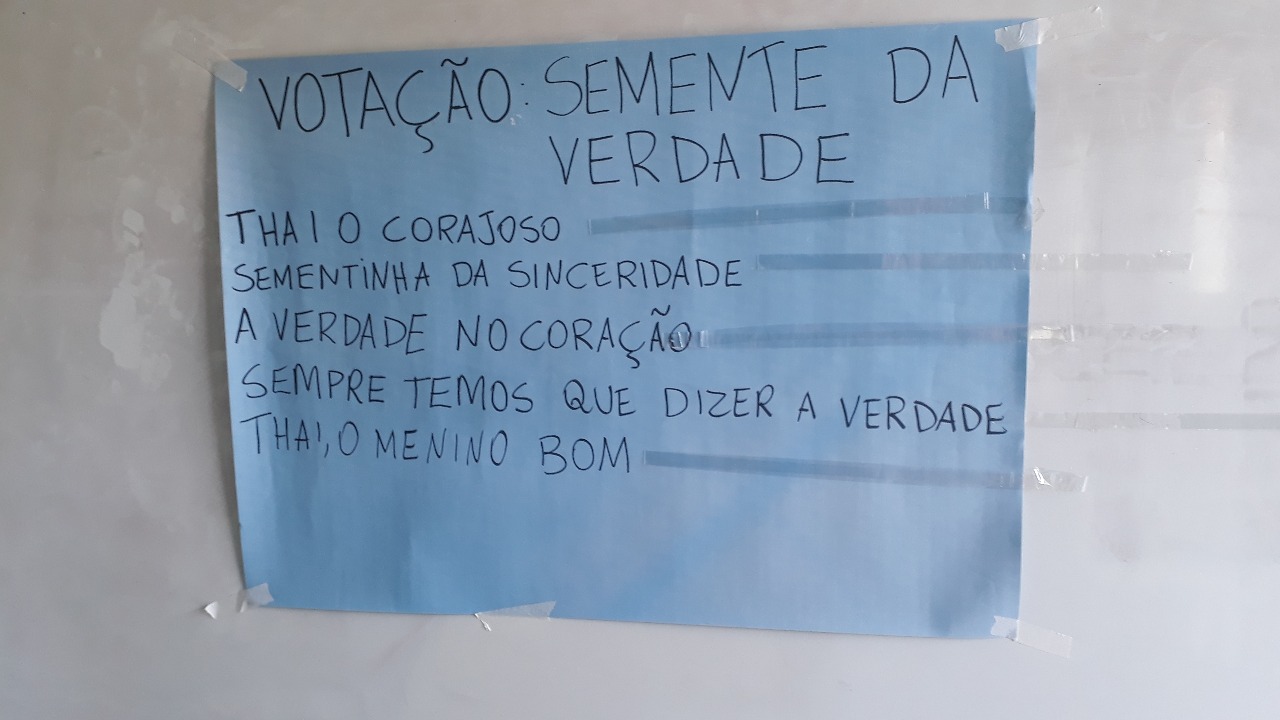 VOTAÇÃO: SEMENTE DA
VERDADE
THAI O CORAJOSO
SEMENTINHA DA SINCERIDADE
A VERDADE NO CORAÇÃO
SEMPRE TEMOS QUE DIZER A VERDADE
THAI, O MENINO BOM